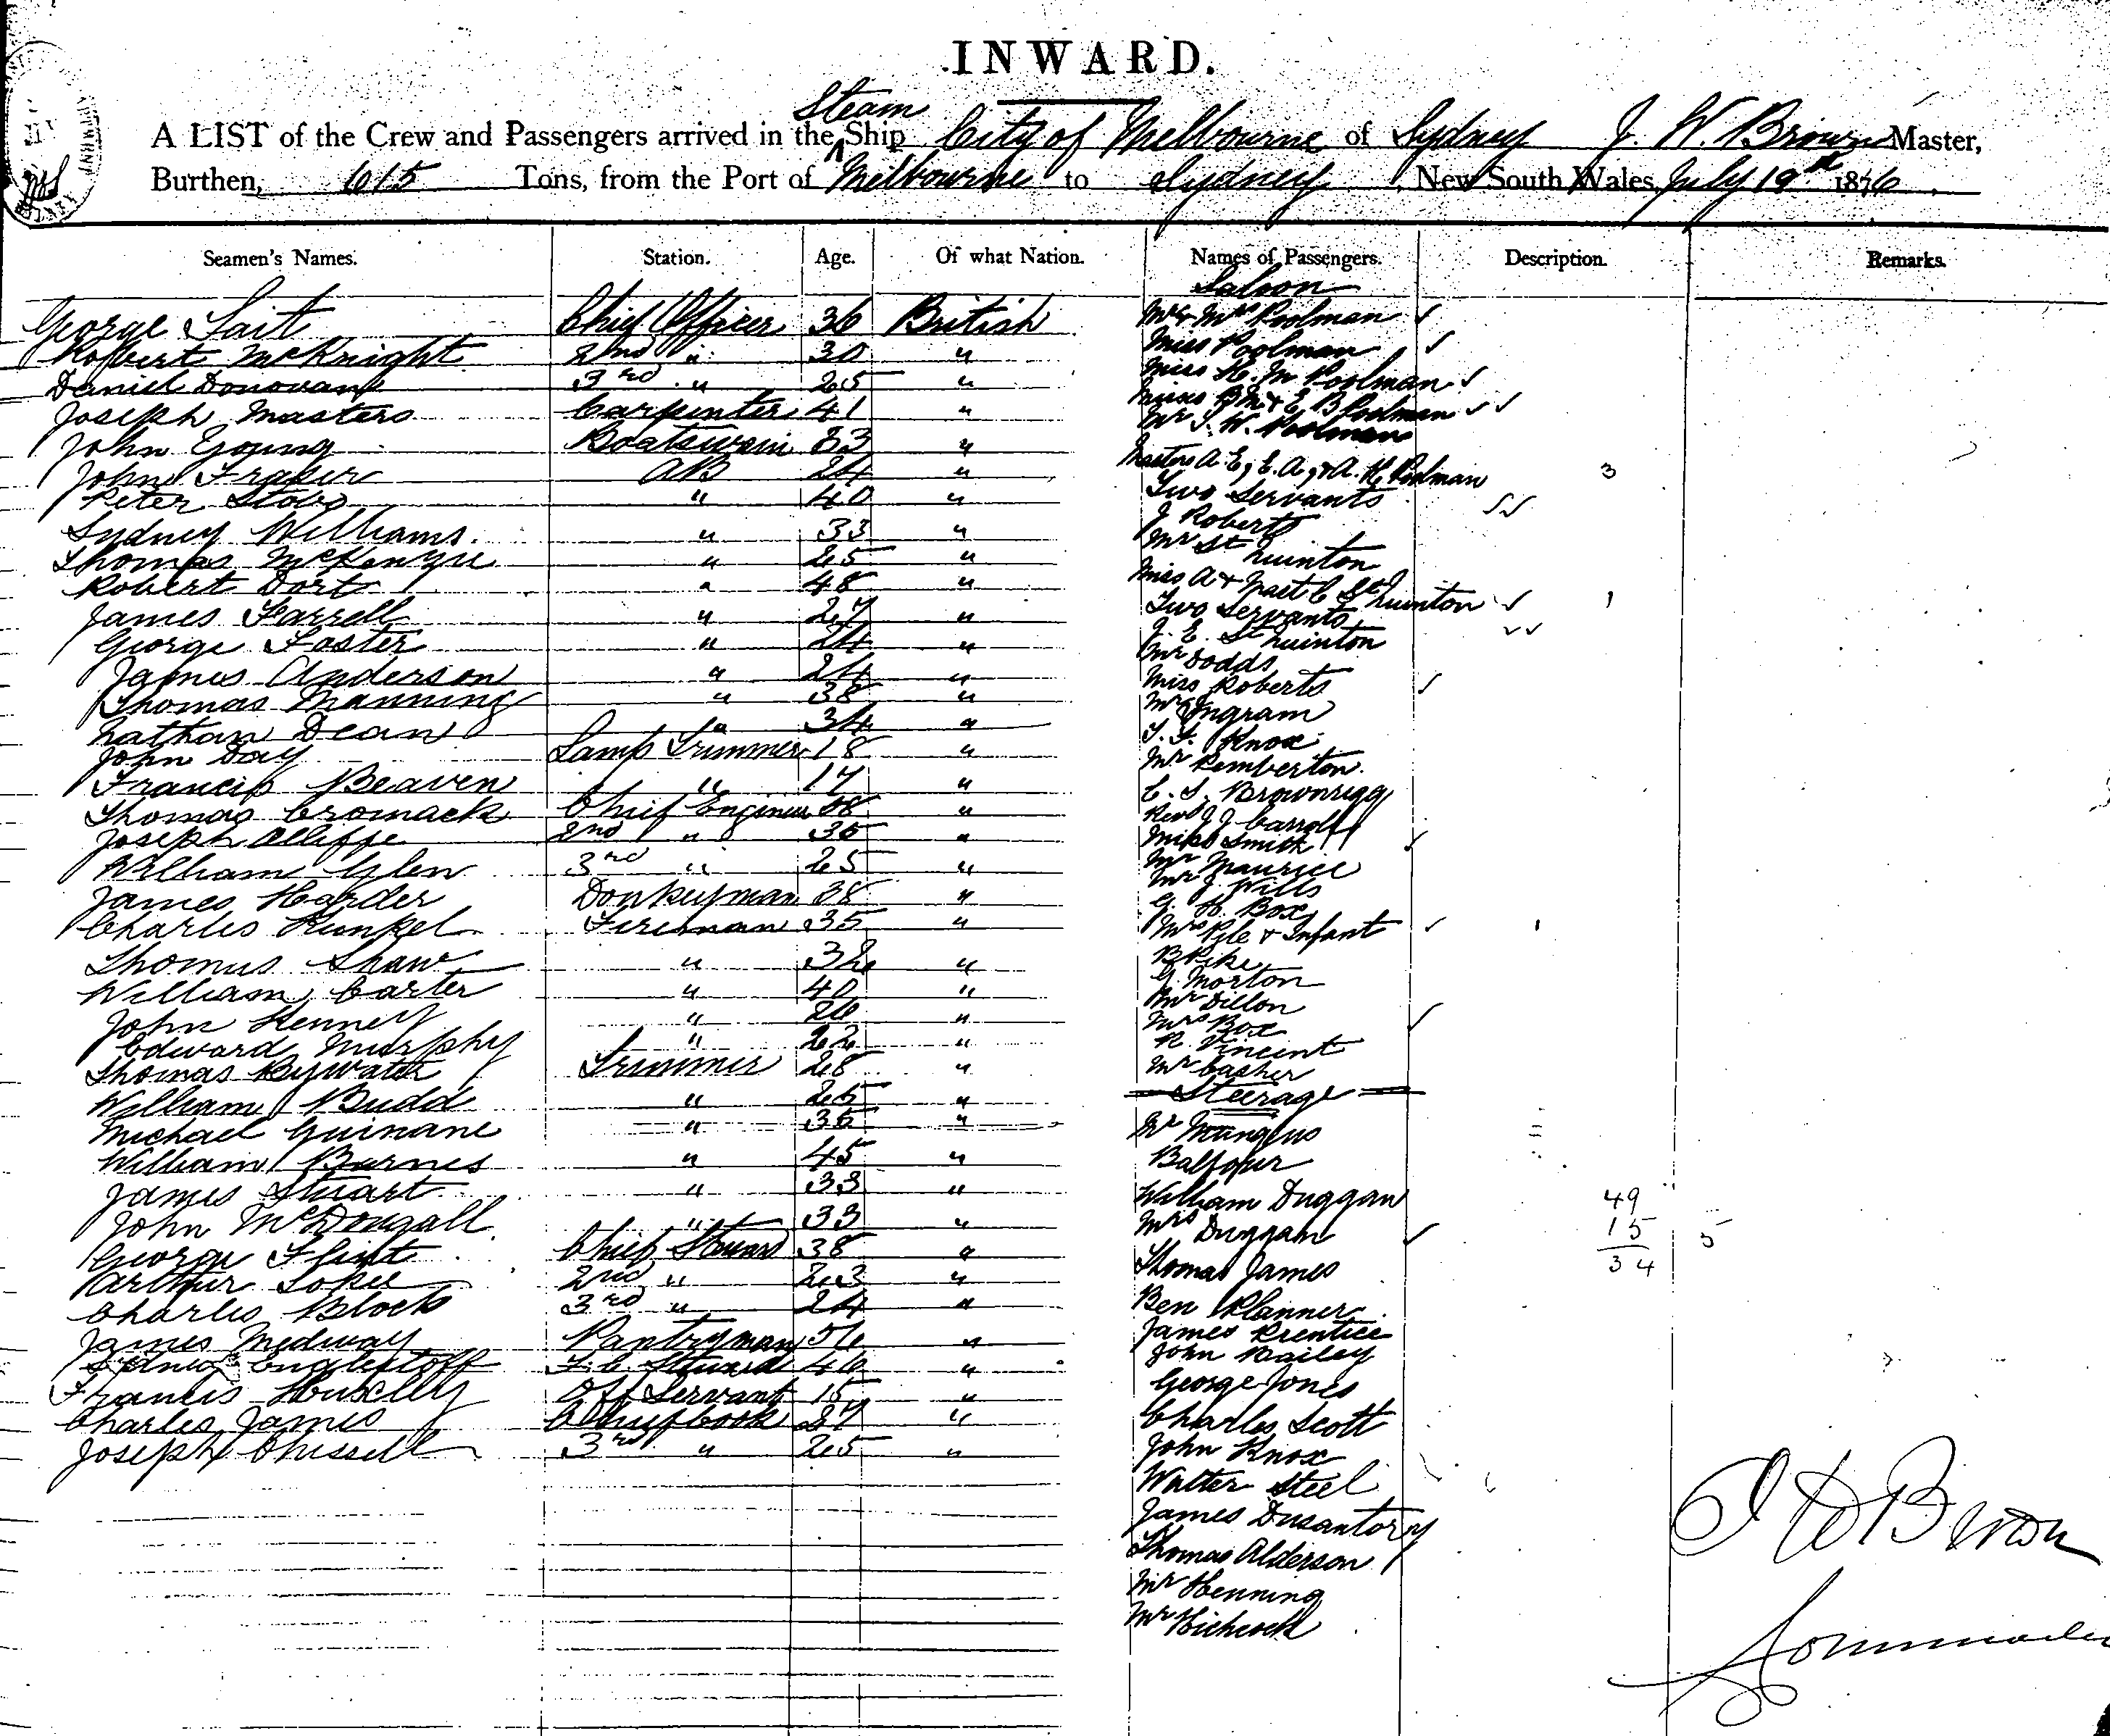 INWARD.
Steam
A LIST of the Crew and Passengers arrived in the Ship City of Melbourne of Sydney J. W. Brown Master,
Burthen, 615 Tons, from the Port of Melbourne to Sydney, New South Wales, July 19th 1876.
Seamen's Names. Station. Age. Of what Nation. Names of Passengers. Description. Remarks.
Saloon
George Tait Chief Officer 36 British Mr & Mrs Poolman ✓
Robert McKnight 2nd " 30 " Miss Poolman ✓
Daniel Donovan 3rd " 25 " Miss H. M Poolman ✓
Joseph Masters Carpenter 41 " Misses B M & E B Poolman ✓ ✓
John Young Boatswain 33 " Mr J. W. Poolman
John Fraser AB 24 " Masters A. E, E. A, & A. H. Poolman 3
Peter " 40 " Two Servants ✓✓
Sydney Williams " 33 " J Roberts
Thomas McKenzie " 25 " Mr St Quinton
Robert Dort " 48 " Miss A & Mast C St Quinton ✓ 1
James Farrell " 27 " Two Servants ✓✓
George Foster " 24 " J. E. St Quinton
James Anderson " 24 " Mr Dodds
Thomas Manning " 38 " Miss Roberts ✓
Nathan Dean " 34 " Ingram
John Day Lamp Trimmer 18 " Knox
Francis Beaven " 17 " Mr Pemberton
Thomas Cromack Chief Engineer 38 " C. S. Brownrigg
Joseph 2nd " 35 " Revd J J Carroll
William Glen 3rd " 25 " Miss Smith ✓
James Harder Donkeyman 38 " Mr Maurice
Charles Kunkel Fireman 35 " Mr J Wills
Thomas Shaw " 32 " G. H. Box
William Carter " 40 " Mrs Pyle & Infant ✓ 1
John Kenney " 26 " B Pike
Edward Murphy " 22 " G. Morton
Thomas Bywater Trimmer 28 " Mr Dillon
William Budd " 25 " Mrs Box ✓
Michael Guinane " 35 " R. Vincent
William Burnes " 45 " Mr Casher
James Stuart " 33 " Steerage
John McDougall " 33 " Mr
George Flint Chief Steward 38 " Balfour
Arthur 2nd " 23 " William Duggan 49
Charles Block 3rd " 24 " Mrs Duggan ✓ 15 5
James Medway Pantryman 56 " Thomas James 34
F. C. Steward 46 " Ben Planner
Francis Huxley Off Servant 15 " James Prentice
Charles James Chief Cook 27 " John Bailey
Joseph Chissell 3rd " 25 " George Jones
Charles Scott
John Knox
Walter Steel
James Dusantory
Thomas Alderson
Mr Henning
Mr Hichcock
J W Brown
Commander